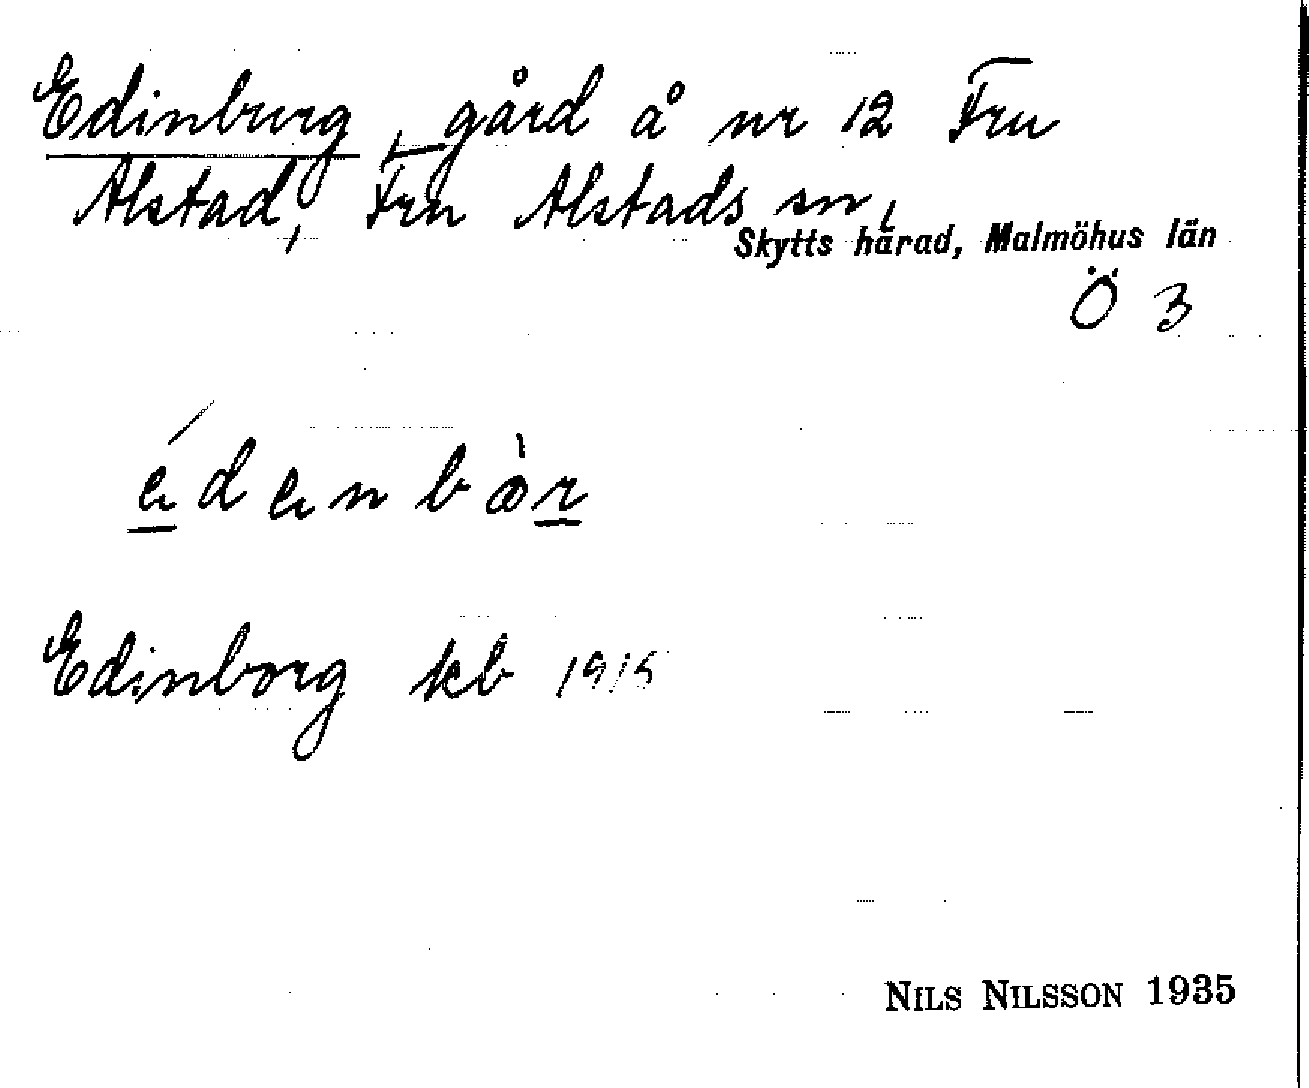 Edinburg, gård å nr 12 Fru
Alstad, Fru Alstads sn,
Skytts härad, Malmöhus län
Ö 3
Edinborg kb 1915
NILS NILSSON 1935